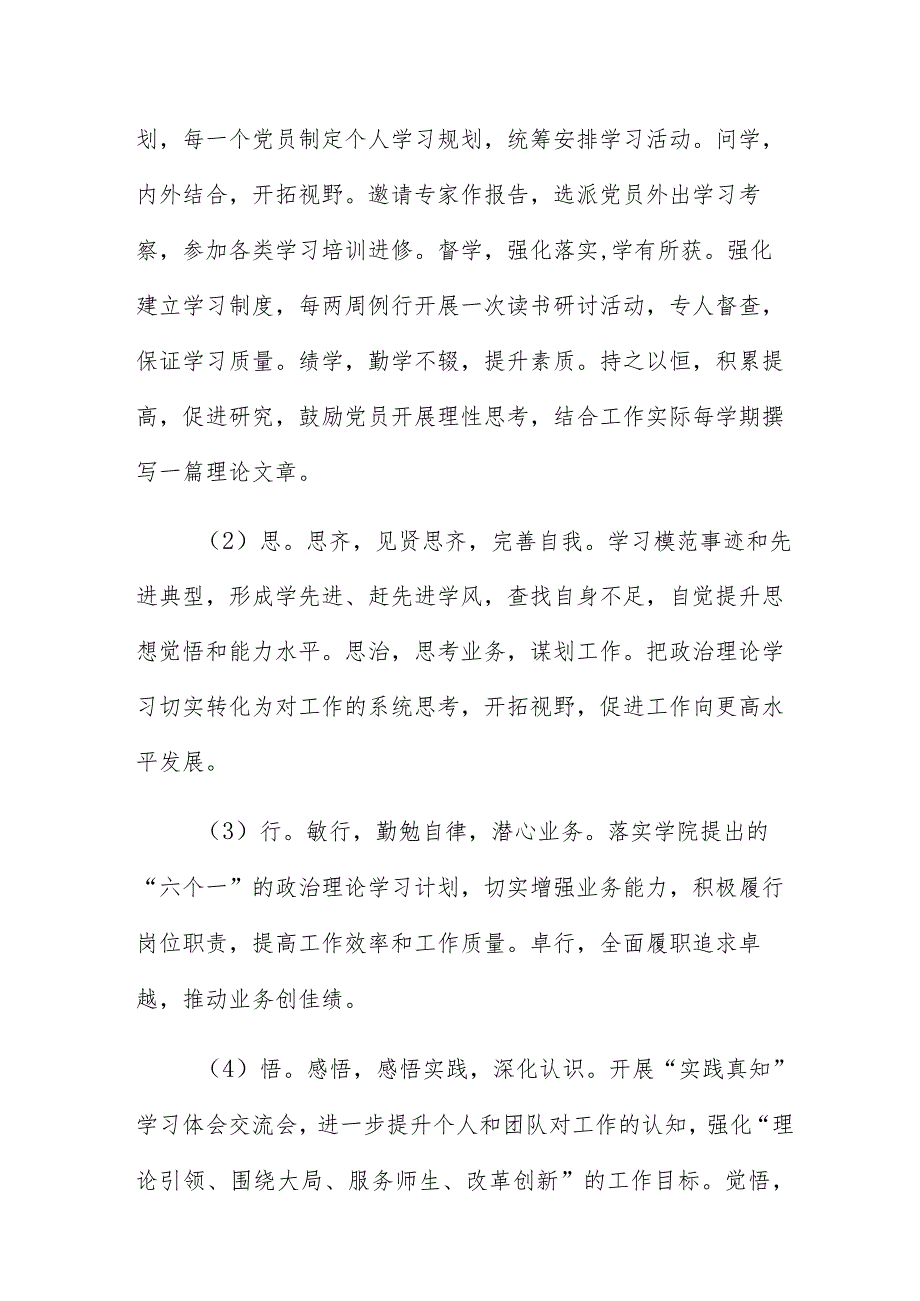 划，每一个党员制定个人学习规划，统筹安排学习活动。问学，
内外结合，开拓视野。邀请专家作报告，选派党员外出学习考
察，参加各类学习培训进修。督学，强化落实,学有所获。强化
建立学习制度，每两周例行开展一次读书研讨活动，专人督查，
保证学习质量。绩学，勤学不辍，提升素质。持之以恒，积累提
高，促进研究，鼓励党员开展理性思考，结合工作实际每学期撰
写一篇理论文章。
（2）思。思齐，见贤思齐，完善自我。学习模范事迹和先
进典型，形成学先进、赶先进学风，查找自身不足，自觉提升思
想觉悟和能力水平。思治，思考业务，谋划工作。把政治理论学
习切实转化为对工作的系统思考，开拓视野，促进工作向更高水
平发展。
（3）行。敏行，勤勉自律，潜心业务。落实学院提出的
“六个一”的政治理论学习计划，切实增强业务能力，积极履行
岗位职责，提高工作效率和工作质量。卓行，全面履职追求卓
越，推动业务创佳绩。
（4）悟。感悟，感悟实践，深化认识。开展“实践真知”
学习体会交流会，进一步提升个人和团队对工作的认知，强化“理
论引领、围绕大局、服务师生、改革创新”的工作目标。觉悟，